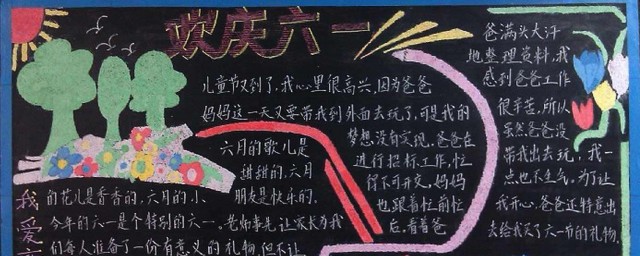 欢庆六一
儿童节又到了，我心里很高兴，因为爸爸
妈妈这一天又要带我到外面去玩了，可是我的
梦想没有实现，爸爸在
进行招标工作，忙
得不可开交，妈妈
也跟着忙前忙
后，看着爸
爸满头大汗
地整理资料，我
感到爸爸工作
很辛苦，所以
虽然爸爸没
带我出去玩，我一
点也不生气，为了让
我开心，爸爸还特意出
去给我买了六一节的礼物，
六月的歌儿是
甜甜的，六月
朋友是快乐的，
的花儿是香香的，六月的小
今年的六一是个特别的六一。老师事先让家长为我
们每人准备了一份有意义的礼物，但不让
我
爱